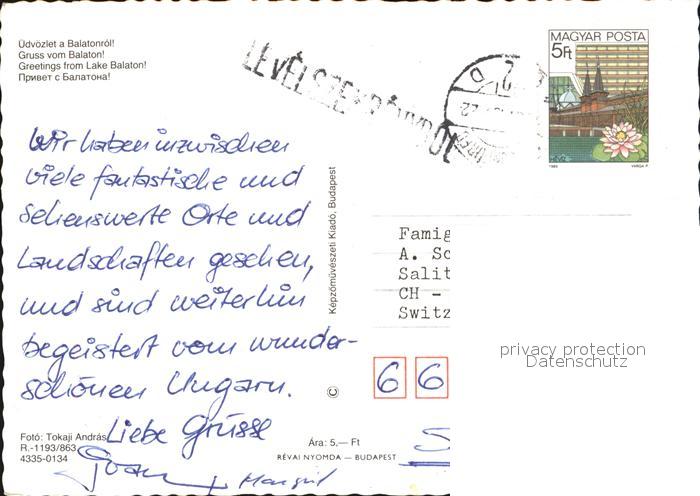 Üdvözlet a Balatonról!
Gruss vom Balaton!
Greetings from Lake Balaton!
Привет с Балатона!
LEVÉLSZEKRÉNYBŐL
MAGYAR POSTA
5Ft
1983 VARGA P.
Wir haben inzwischen
viele fantastische und
sehenswerte Orte und
Landschaften gesehen,
und sind weiterhin
begeistert vom wunder-
schönen Ungarn.
Liebe Grüsse
Margrit
Képzőművészeti Kiadó, Budapest
©
Famig
A. Sc
Salit
CH -
Switz
privacy protection
Datenschutz
6 6
Fotó: Tokaji András
R.-1193/863
4335-0134
Ára: 5,— Ft
RÉVAI NYOMDA — BUDAPEST